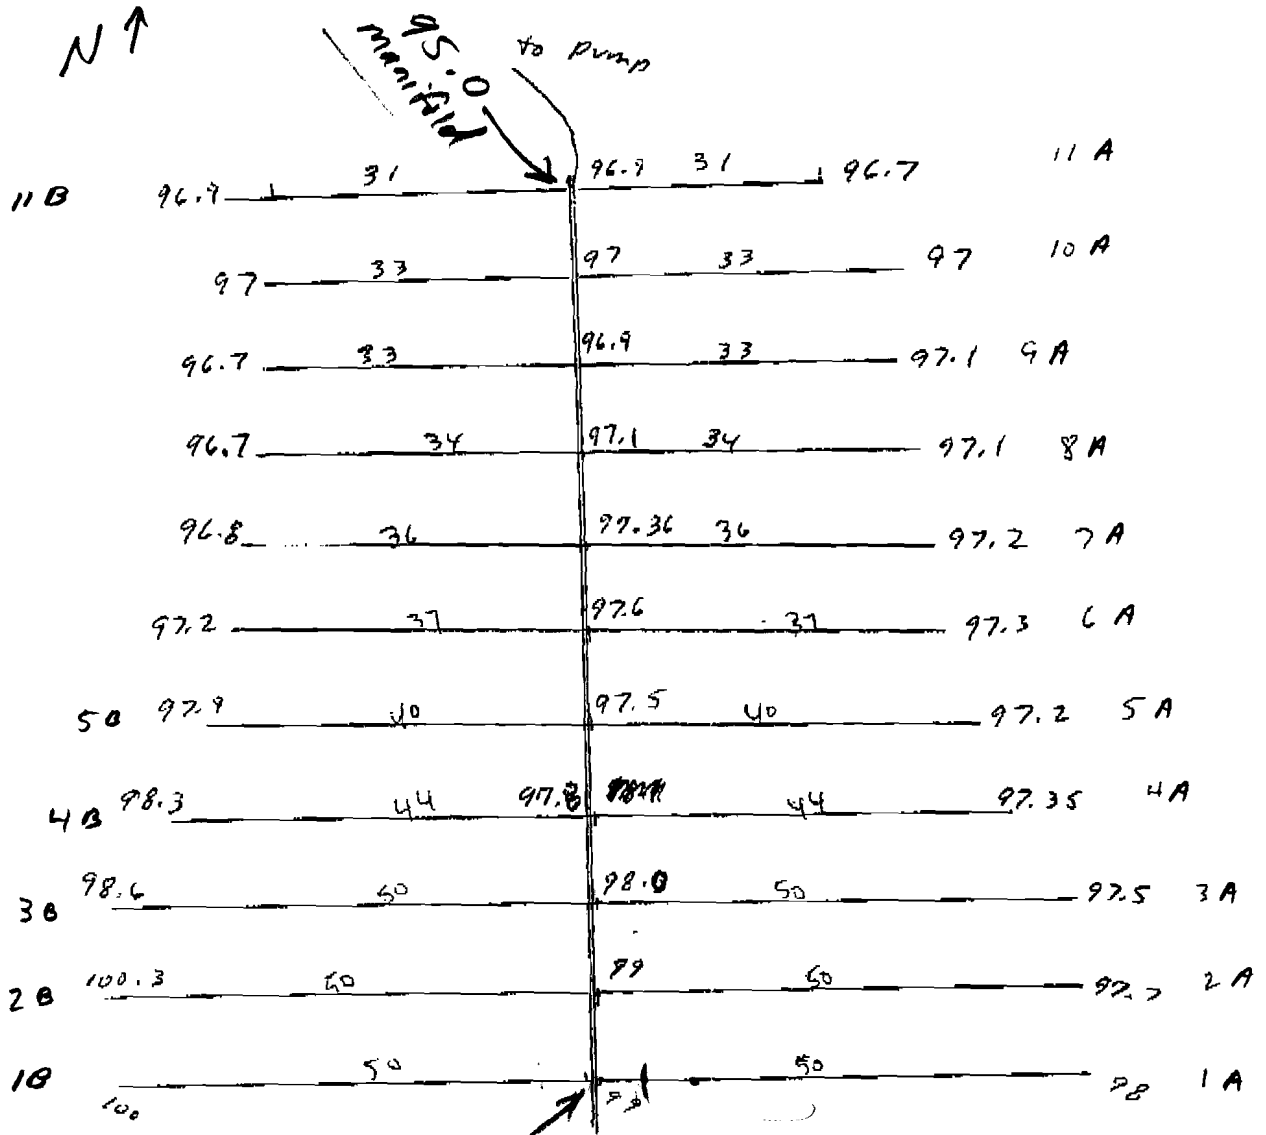 N ↑
95.0
manifold
to pump
11 B 96.9 31 96.9 31 96.7 11 A
97 33 97 33 97 10 A
96.7 33 96.9 33 97.1 9 A
96.7 34 97.1 34 97.1 8 A
96.8 36 97.36 36 97.2 7 A
97.2 37 97.6 37 97.3 6 A
5 B 97.9 40 97.5 40 97.2 5 A
4 B 98.3 44 97.8 44 97.35 4 A
3 B 98.6 50 98.0 50 97.5 3 A
2 B 100.3 50 99 50 97.7 2 A
1 B 100 50 50 98 1 A